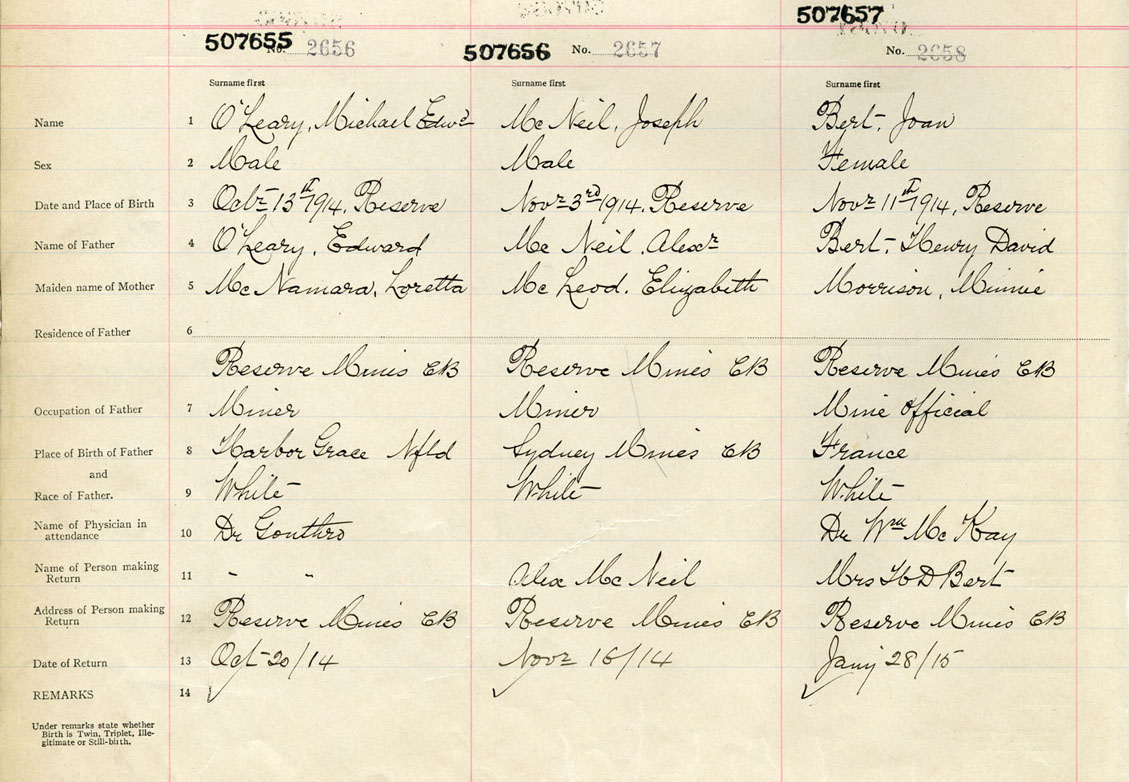 507657
507655 No. 2656 507656 No. 2657 No. 2658
Surname first Surname first Surname first
Name 1 O'Leary, Michael Edwd Mc Neil, Joseph Bert, Joan
Sex 2 Male Male Female
Date and Place of Birth 3 Octr 13th 1914, Reserve Novr 3rd 1914, Reserve Novr 11th 1914, Reserve
Name of Father 4 O'Leary, Edward Mc Neil, Alexr Bert, Henry David
Maiden name of Mother 5 Mc Namara, Loretta Mc Leod, Elizabeth Morrison, Minnie
Residence of Father 6
Reserve Mines CB Reserve Mines CB Reserve Mines CB
Occupation of Father 7 Miner Miner Mine Official
Place of Birth of Father 8 Harbor Grace Nfld Sydney Mines CB France
and
Race of Father. 9 White White White
Name of Physician in
attendance 10 Dr Gouthro Dr Wm Mc Kay
Name of Person making
Return 11 " " Alex Mc Neil Mrs H D Bert
Address of Person making
Return 12 Reserve Mines CB Reserve Mines CB Reserve Mines CB
Date of Return 13 Oct 20/14 Novr 16/14 Jany 28/15
REMARKS 14
Under remarks state whether
Birth is Twin, Triplet, Ille-
gitimate or Still-birth.